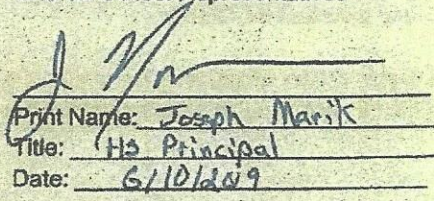 Print Name: Joseph Marik
Title: HS Principal
Date: 6/10/2019